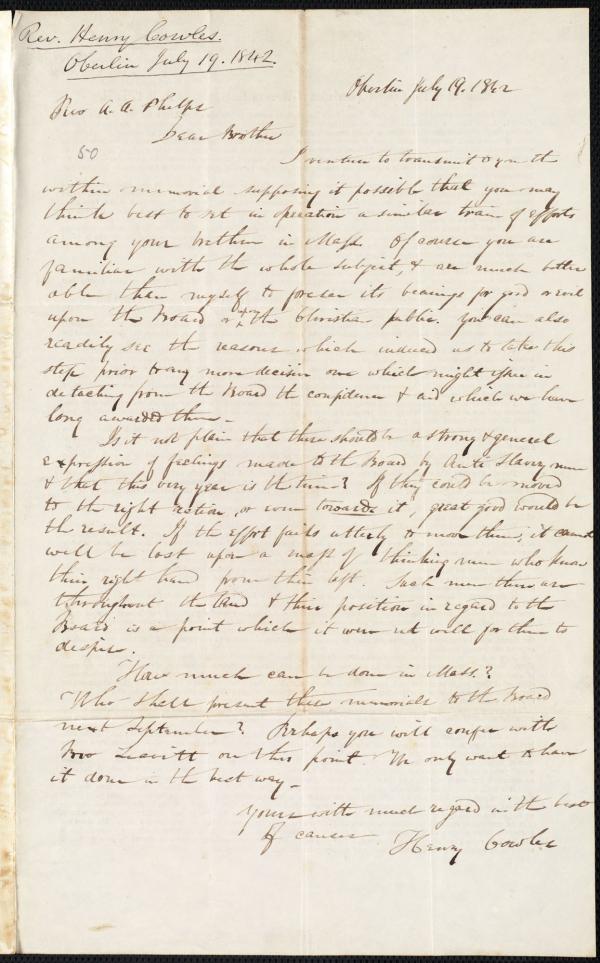 Rev. Henry Cowles.
Oberlin July 19. 1842.
Oberlin July 19. 1842
Rev A. A. Phelps
Dear Brother
50
I venture to transmit to you the
within memorial supposing it possible that you may
think best to set in operation a similar train of efforts
among your brethren in Mass. Of course you are
familiar with the whole subject, & are much better
able than myself to foresee its bearings for good or evil
upon the Board or the Christian public. You can also
readily see the reasons which induced us to take this
step prior to any more decisive one which might issue in
detacting from the Board the confidence & aid which we have
long awarded them.
Is it not plain that there should be a strong & general
expression of feelings made to the Board by Anti Slavery men
& that this very year is the time? If they could be moved
to the right action, or even towards it, great good would be
the result. If the effort fails utterly to move them, it cannot
well be lost upon a mass of thinking men who know
their right hand from their left. Such men there are
throughout the land & their position in regard to the
Board is a point which it were not well for them to
despise.
How much can be done in Mass.?
Who shall present these memorials to the Board
next September? Perhaps you will confer with
Bro Leavitt on this point. We only want to have
it done in the best way.
Yours with much regard in the best
of causes
Henry Cowles